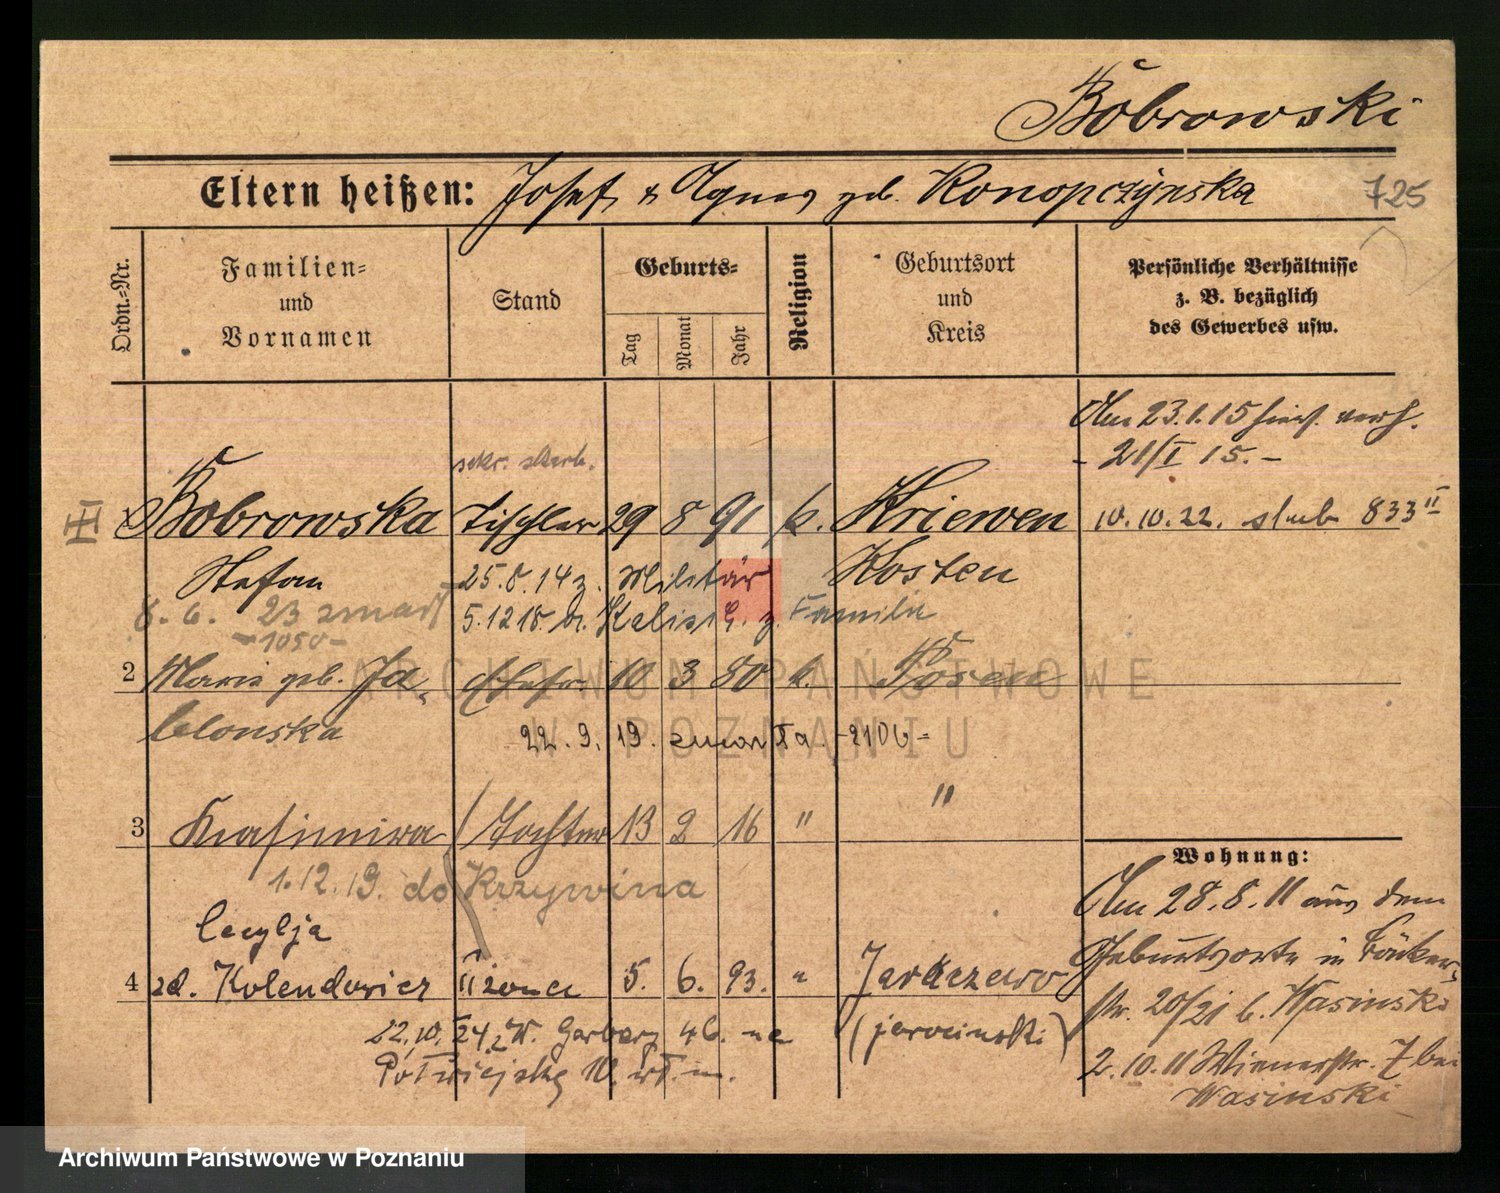 Bobrowski
Eltern heißen: Josef & Agnes geb. Konopczynska
725
Ordn.=Nr.
Familien=
und
Vornamen
Stand
Geburts=
Tag
Monat
Jahr
Religion
Geburtsort
und
Kreis
Persönliche Verhältnisse
z. B. bezüglich
des Gewerbes usw.
Am 23.1.15 hies. verh.
- 21/I 15. -
1 Bobrowska Tischler 29 8 91 k. Kriewen 10.10.22. slub 833 II
Stefan 25.8.14 z. Militär Kosten
8.6. 23 zmarł 5.12 18. Kalisch z. Familie
-1050-
2 Maria geb. Ja- Ehefr. 10 3 80 k. Posen
blonska
22.9. 19. zmarła -2106-
3 Kasimira Tochter 13 2 16 " "
1.12.19. do Krzywina
Cecylja
4 zd. Kolendowicz II żona 5. 6. 93. " Jaraczewo
(jarocinski)
22.10.24 W. Garbary 46. na
Półwiejską 10.
Wohnung:
Am 28.8.11 aus dem
Geburtsorte in Bäcker-
str. 20/21 b. Wasinski
2.10.11 Wienerstr. 7 bei
Wasinski
ARCHIWUM PAŃSTWOWE
W POZNANIU
Archiwum Państwowe w Poznaniu